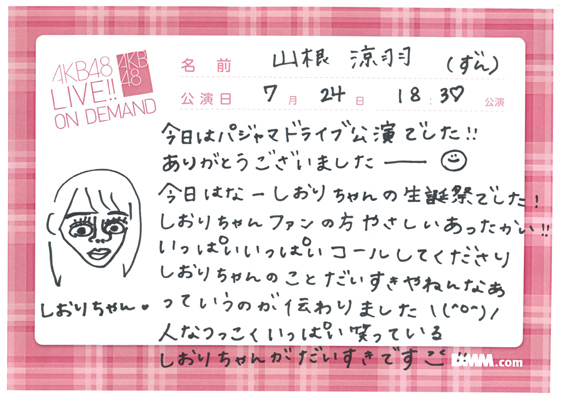 AKB48
LIVE!!
ON DEMAND
AKB
48
名前 山根 涼羽 (ずん)
公演日 7月 24日 18:30 公演
今日はパジャマドライブ公演でした!!
ありがとうございました
今日はなーしおりちゃんの生誕祭でした!
しおりちゃんファンの方やさしいあったかい!!
いっぱいいっぱいコールしてくださり
しおりちゃんのことだいすきやねんなあ
っていうのが伝わりました\(^o^)/
人なつっこくいっぱい笑っている
しおりちゃんがだいすきです
しおりちゃん。
DMM.com